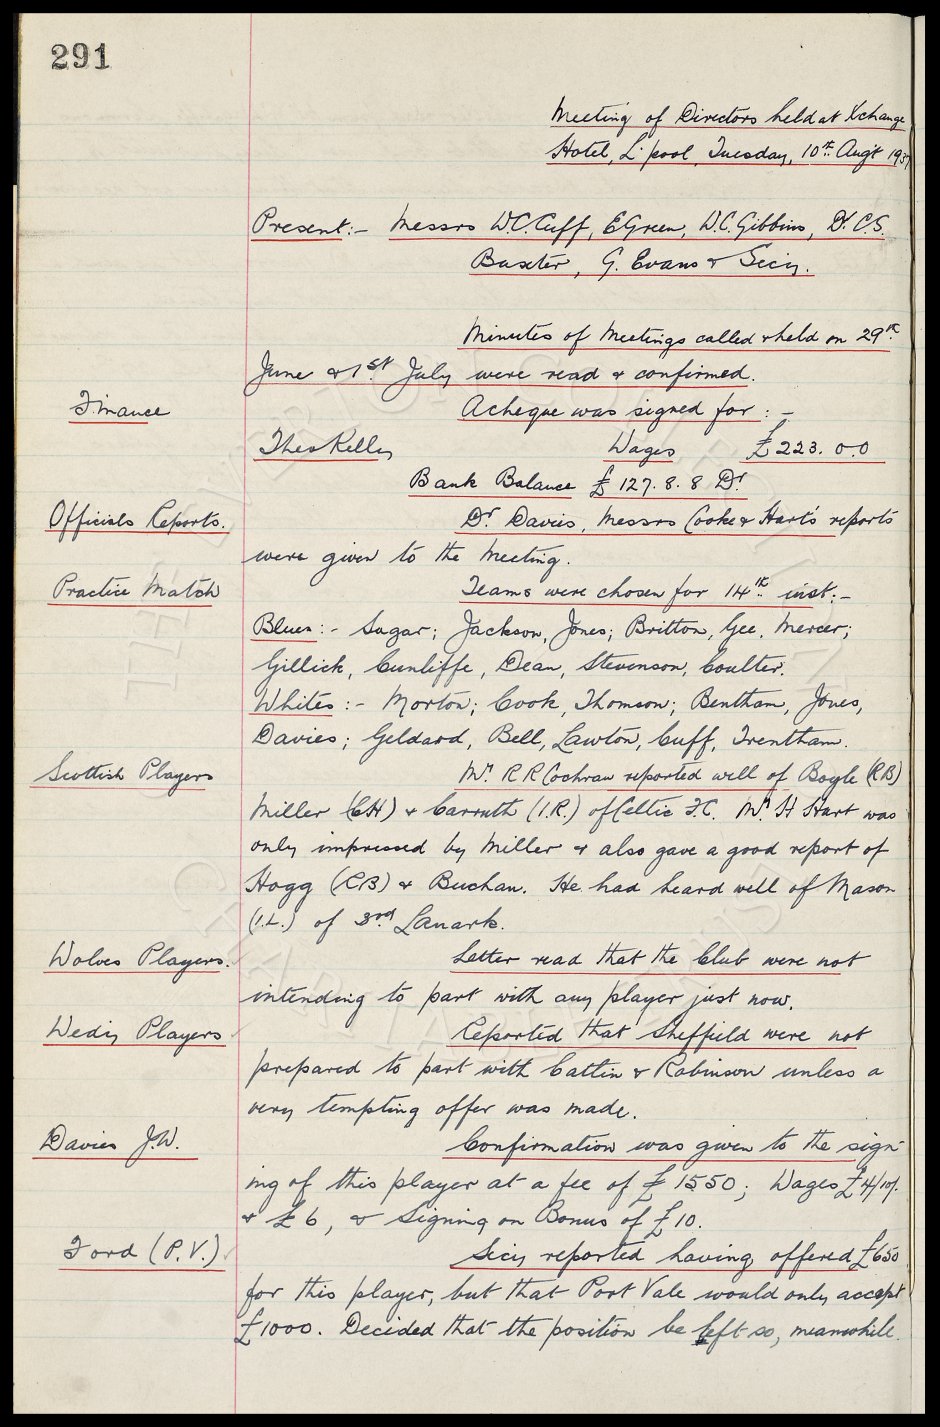 291
Meeting of Directors held at Xchange
Hotel, L'pool, Tuesday, 10th Aug't 1937
Present:- Messrs W.C. Cuff, E Green, W.C. Gibbins, Dr. C.S.
Baxter, G. Evans & Secy.
Minutes of Meetings called & held on 29th
June & 1st July were read & confirmed.
Finance A cheque was signed for :-
Theo Kelly Wages £223. 0. 0
Bank Balance £127. 8. 8 Dr
Officials Reports. Dr Davies, Messrs Cooke & Hart's reports
were given to the Meeting.
Practice Match Teams were chosen for 14th inst:-
Blues:- Sagar; Jackson, Jones; Britton, Gee, Mercer;
Gillick, Cunliffe, Dean, Stevenson, Coulter.
Whites:- Morton; Cook, Thomson; Bentham, Jones,
Davies; Geldard, Bell, Lawton, Cuff, Trentham.
Scottish Players Mr. R R Cochran reported well of Boyle (R B)
Miller (CH) & Carruth (I.R.) of Celtic F.C. Mr. H Hart was
only impressed by Miller & also gave a good report of
Hogg (RB) & Buchan. He had heard well of Mason
(I.L.) of 3rd Lanark.
Wolves Players. Letter read that the Club were not
intending to part with any player just now.
Wedy Players Reported that Sheffield were not
prepared to part with Catlin & Robinson unless a
very tempting offer was made.
Davies J.W. Confirmation was given to the sign-
ing of this player at a fee of £1550; Wages £4/10/-
& £6, & Signing on Bonus of £10.
Ford (P.V.) Secy reported having offered £650
for this player, but that Port Vale would only accept
£1000. Decided that the position be left so, meanwhile.